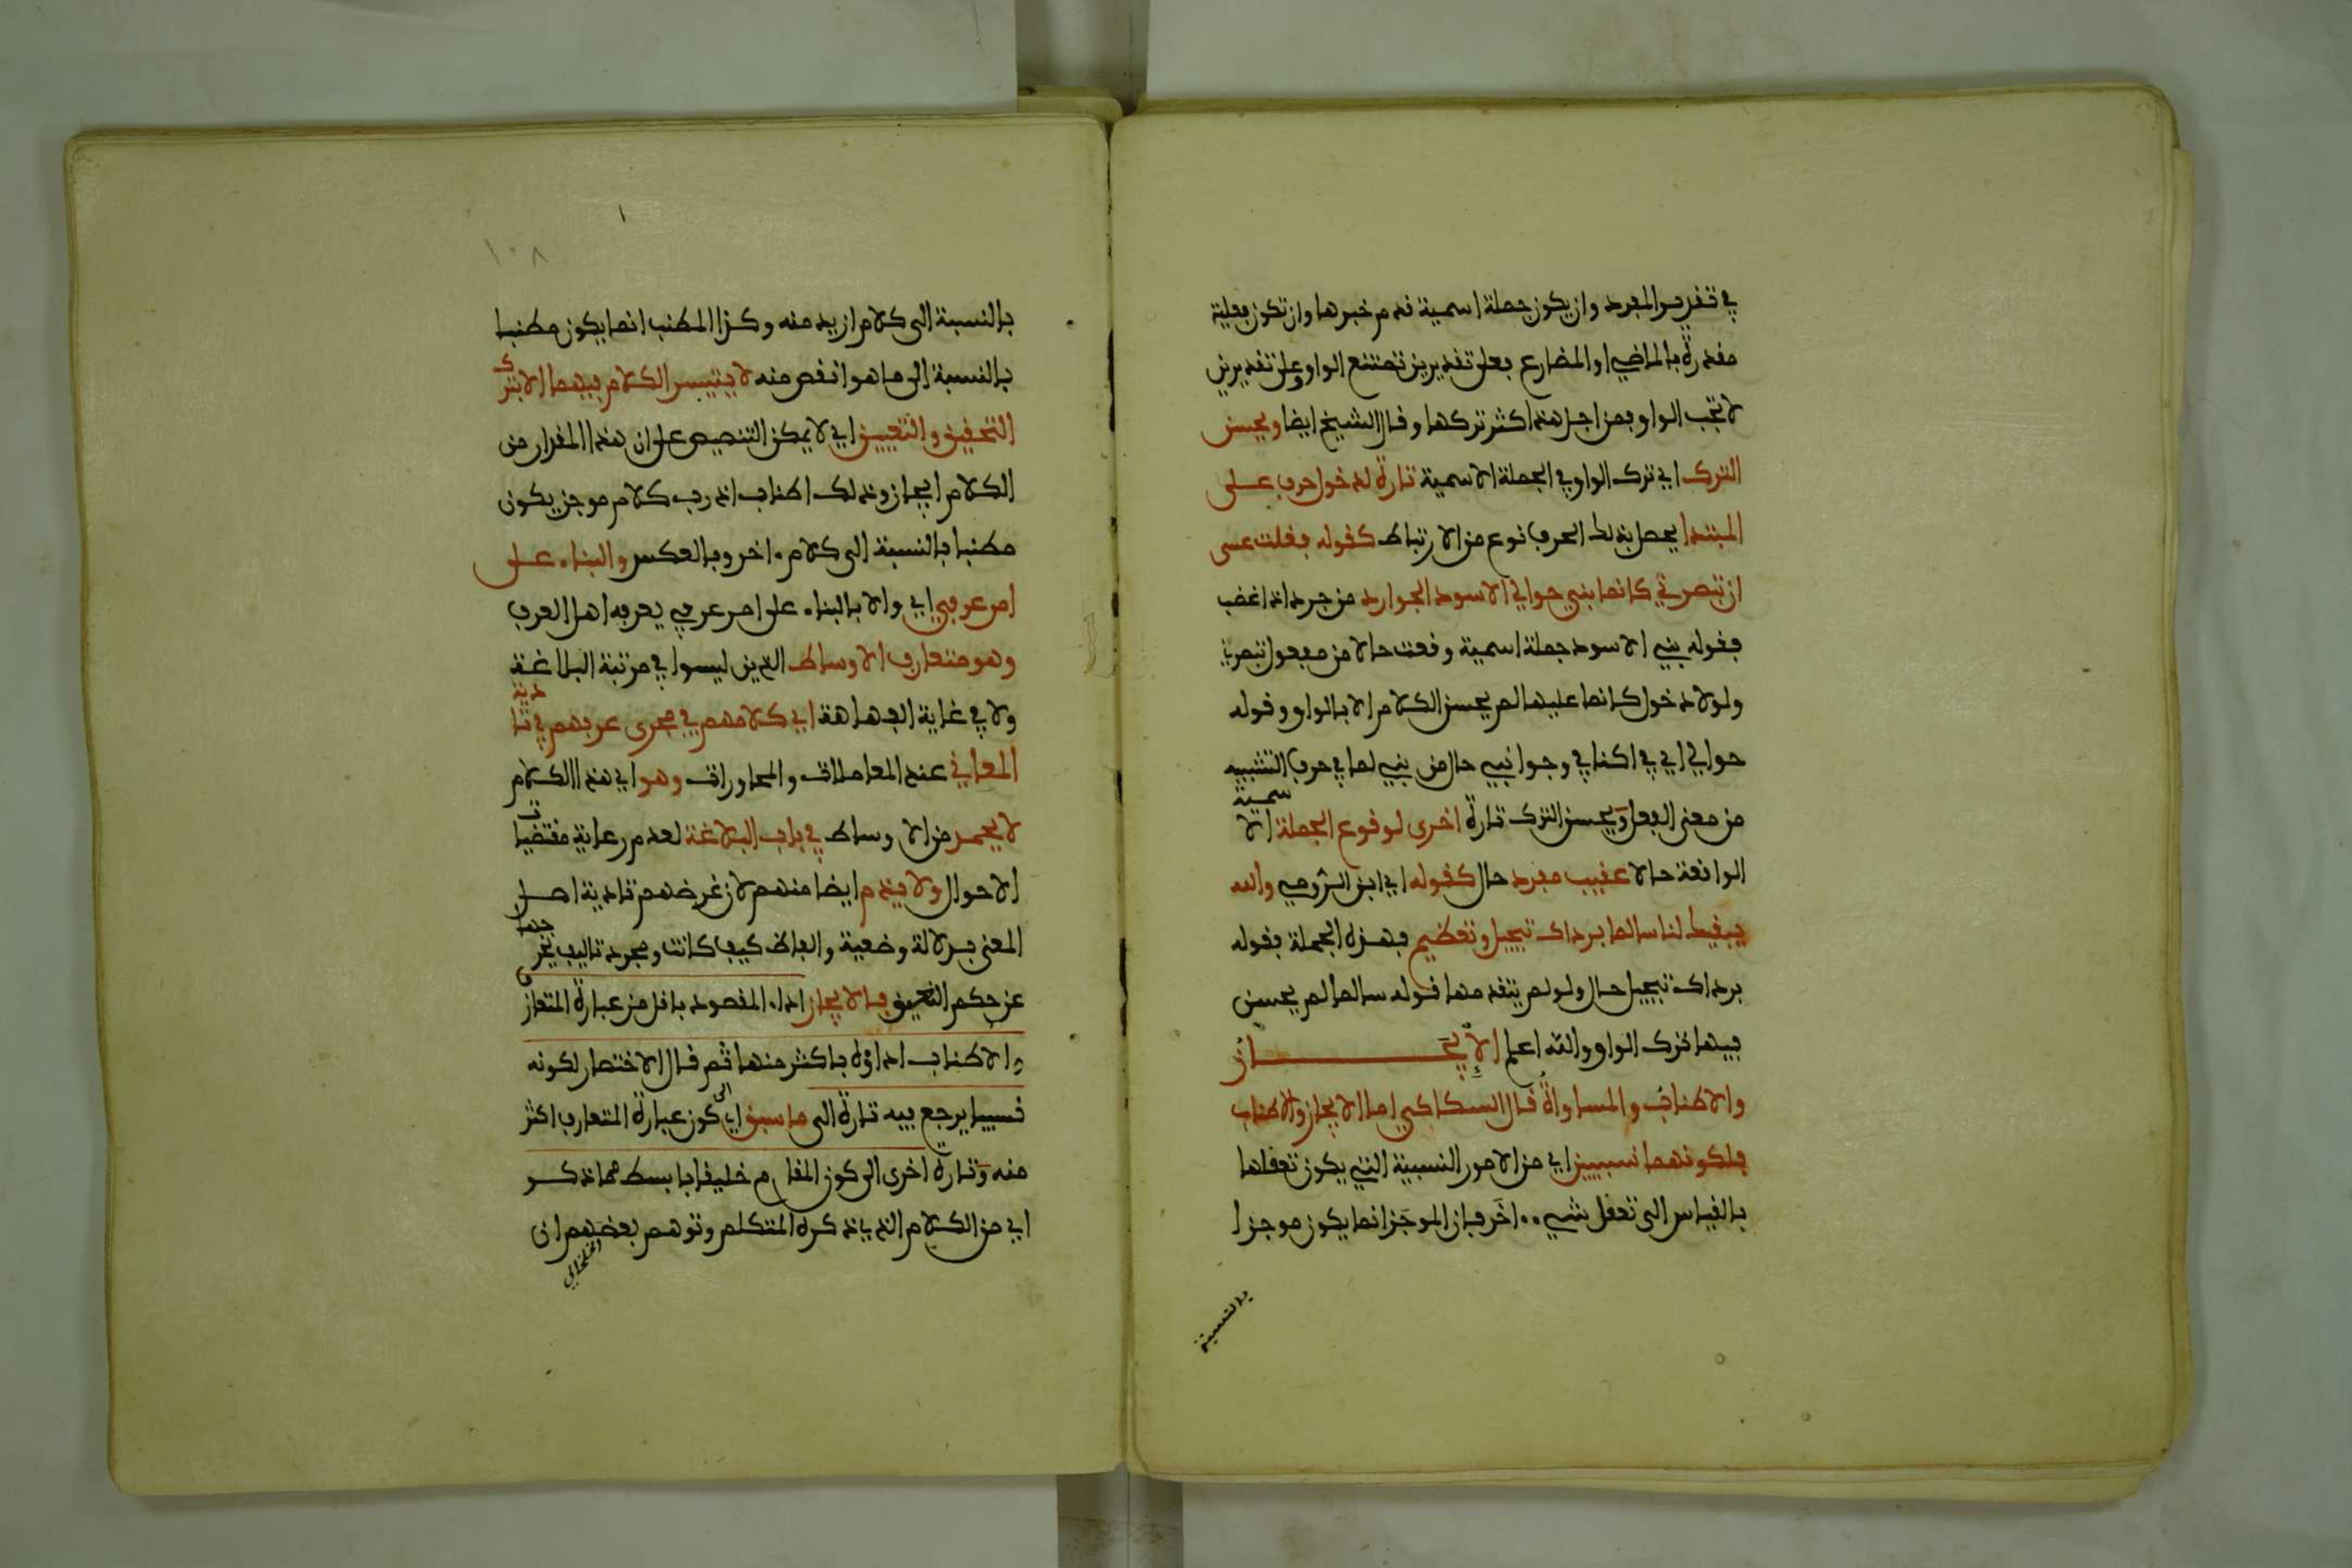 في تقدير المفرد وان يكون جملة اسمية قدم خبرها وان تكون فعلية
مقدرة بالماضي او المضارع فعلى تقديرين تمتنع الواو وعلى تقديرين
لا تجب الواو فمن اجل هذا كثر تركها وقال الشيخ ايضا ويحسن
الترك اي ترك الواو في الجملة الاسمية تارة لدخول حرف على
المبتدا يحصل بذلك الحرف نوع من الارتباط كقوله فقلت عسى
ان تبصريني كانما بني حوالي الاسود الحوارد من حرد اذا غضب
فقوله بني الاسود جملة اسمية وقعت حالا من مفعول تبصريني
ولولا دخول كانما عليها لم يحسن الكلام الا بالواو وقوله
حوالي اي في اكنافي وجوانبي حال من بني لما في حرف التشبيه
من معنى الفعل ويحسن الترك تارة اخرى لوقوع الجملة الاسمية
الواقعة حالا عقيب مفرد حال كقوله اي ابن الرومي والله
يبقيك لنا سالما برداك تبجيل وتعظيم فهذه الجملة فقوله
برداك تبجيل حال ولو لم يتقدمها قوله سالما لم يحسن
فيها ترك الواو والله اعلم الإيجاز
والاطناب والمساواة قال السكاكي اما الايجاز والاطناب
فلكونهما نسبيين اي من الامور النسبية التي يكون تعقلها
بالقياس الى تعقل شيء اخر فان الموجز انما يكون موجزا
بالنسبة
١٠٨
بالنسبة الى كلام ازيد منه وكذا المطنب انما يكون مطنبا
بالنسبة الى ما هو انقص منه لا يتيسر الكلام فيهما الا بترك
التحقيق والتعيين اي لا يمكن التنصيص على ان هذا المقدار من
الكلام ايجاز وذلك اطناب اذ رب كلام موجز يكون
مطنبا بالنسبة الى كلام اخر وبالعكس والبناء على
امر عرفي اي والا بالبناء على امر عرفي يعرفه اهل العرف
وهو متعارف الاوساط الذين ليسوا في مرتبة البلاغة
ولا في غاية الفهاهة اي كلامهم في مجرى عرفهم في تادية
المعاني عند المعاملات والمحاورات وهو اي هذا الكلام
لا يحمد من الاوساط في باب البلاغة لعدم رعاية مقتضيات
الاحوال ولا يذم ايضا منهم لان غرضهم تادية اصل
المعنى بدلالة وضعية والفاظ كيف كانت ومجرد تاليف يخرجها
عن حكم النعيق فالايجاز اداء المقصود باقل من عبارة المتعارف
والاطناب اداؤه باكثر منها ثم قال الاختصار لكونه
نسبيا يرجع فيه تارة الى ما سبق اي الى كون عبارة المتعارف اكثر
منه وتارة اخرى الى كون المقام خليقا بابسط مما ذكر
اي من الكلام الذي ذكره المتكلم وتوهم بعضهم ان